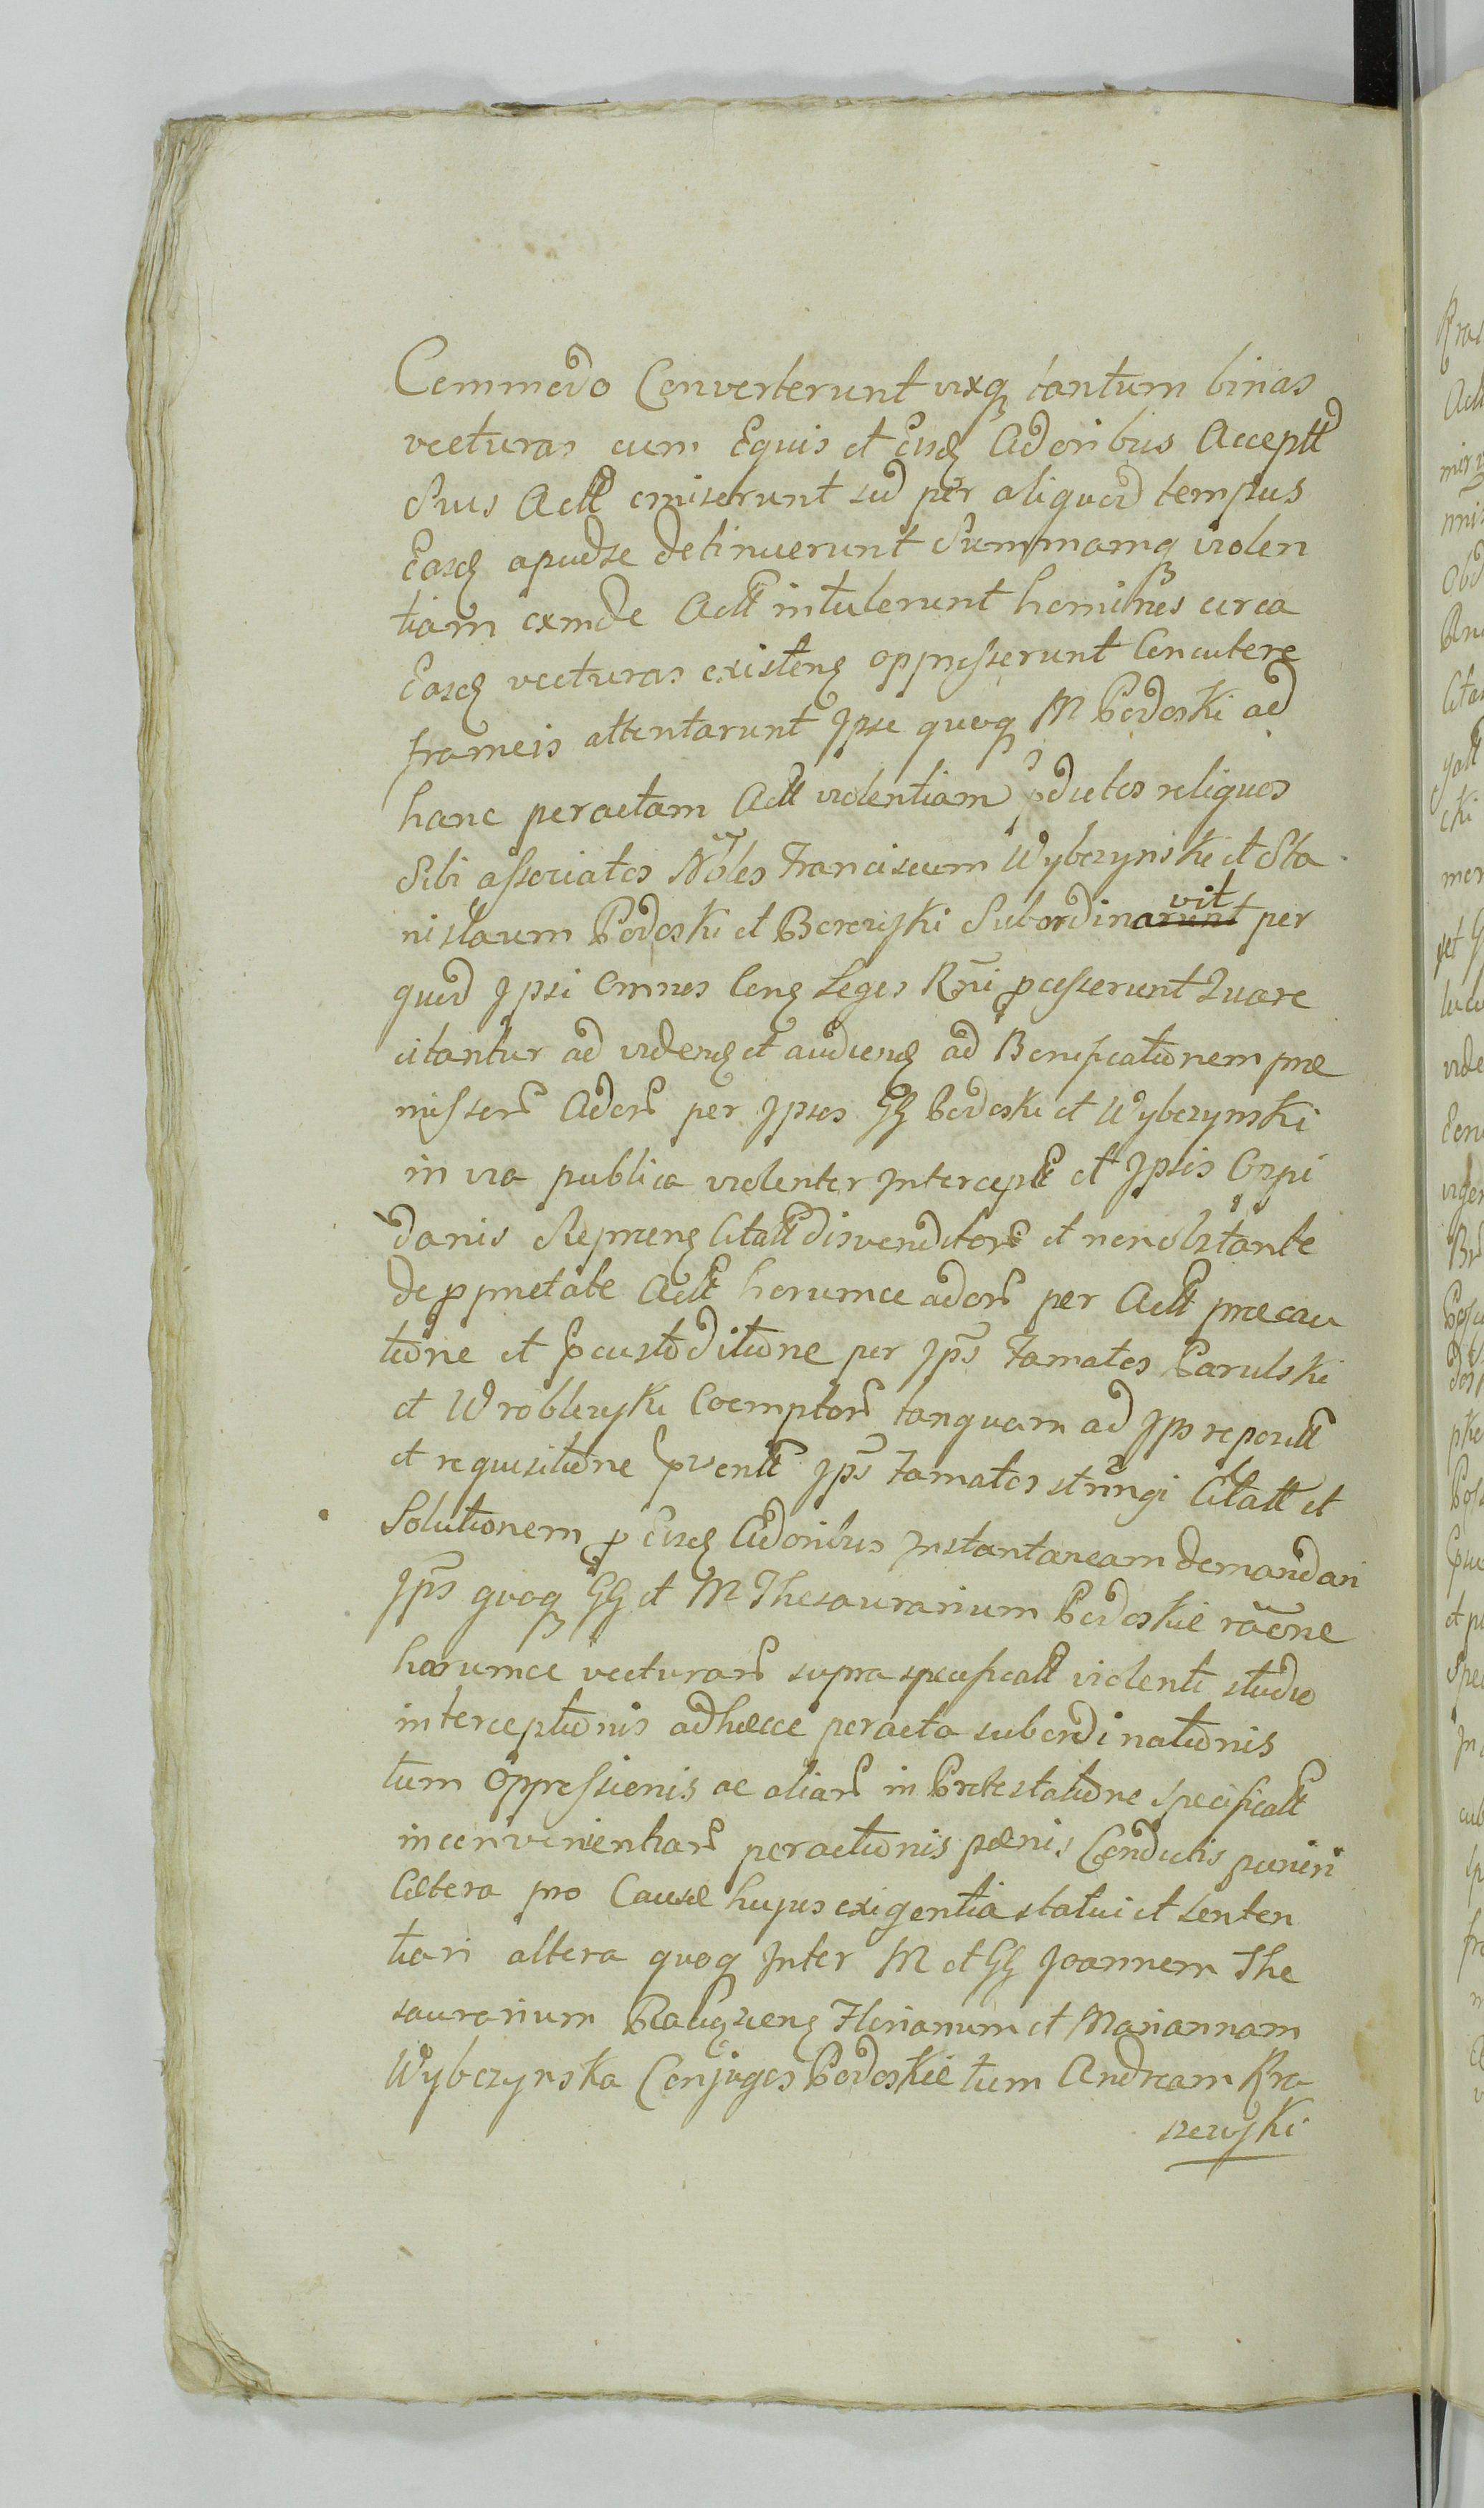 Commodo Converterunt vixq tantum binas
vecturas cum Equis et Eisd Adoribus Acceptt
Suis Actt emiserunt sed per aliquod tempus
Easd apud se detinuerunt Summamq violen
tiam exinde Actt intulerunt homines circa
Easd vecturas existen oppresserunt Concutere
frameis attentarunt Ipse quoq M Podoski ad
hanc peractam Actt violentiam pdictos reliquos
Sibi associatos Nobles Franciscum Wybczynski et Sta
nislaum Podoski et Borewski Subordinavit per
quod Ipsi Omnes Conq Leges Rni pcesserunt Quare
citantur ad viden et audien ad Bonificationem præ
missor Ador per Ipsos GG Podoski et Wybczynski
in via publica violenter Intercept et Ipsis Oppi
danis Repræn Citatt disvenditor et non obstante
de pprietate Actt horumce ador per Actt præcau
tione et pcustoditione per Ips Famatos Parulski
et Wroblewski Coemptor tanquam ad Ips reposit
et requisitione pventt Ips Famatos stringi Citatt et
Solutionem p Eisd Adoribus Instantaneam demandari
Ips quoq GG et M Thesaurarium Podoskie raone
horumce vecturar supra specificatt violenti studio
interceptionis adhæcce peracta subordinationis
tum Oppressionis ac aliar in Protestatione specificatt
inconvenientiar peractionis pænis Condictis puniri
Cætera pro Causæ hujus exigentia statui et senten
tiari altera quoq Inter M et GG Joannem The
saurarium Florianum et Mariannam
Wybczynska Conjuges Podoskie tum Andream Kra
szewski